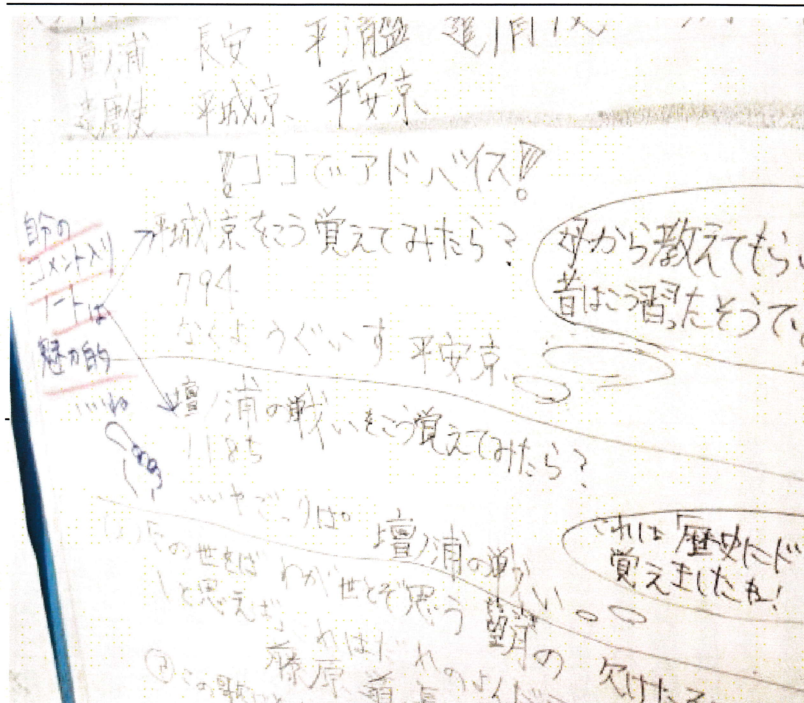 壇ノ浦 長安 平清盛
遣唐使 平城京 平安京
!ココでアドバイス!
自分の
コメント入り
ノートは
魅力的
いいね
平城京をこう覚えてみたら?
794
なくようぐいす 平安京
母から教えてもらい
昔はこう習ったそうでい
壇ノ浦の戦いをこう覚えてみたら?
1185
いいやごっつりは。 壇ノ浦の戦い
これは「歴史にド
覚えましたね!
この世をば わが世とぞ思う 望月の 欠けた
と思えば
藤原